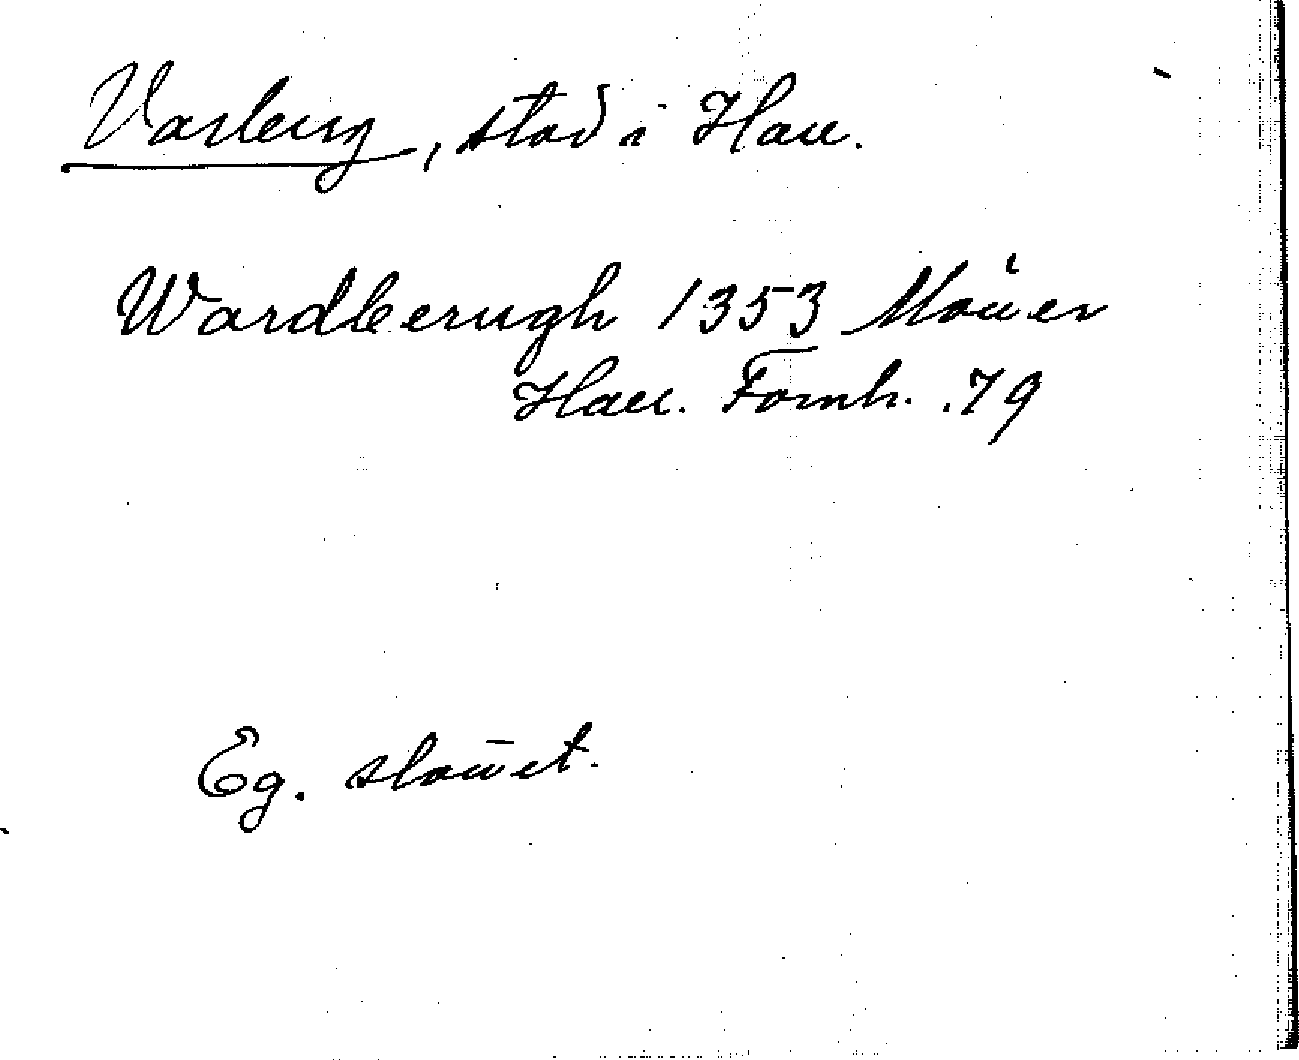 Varberg, stad i Hall.
Wardberugh 1353 Möller
Hall. Fornh. 79
Eg. slottet.